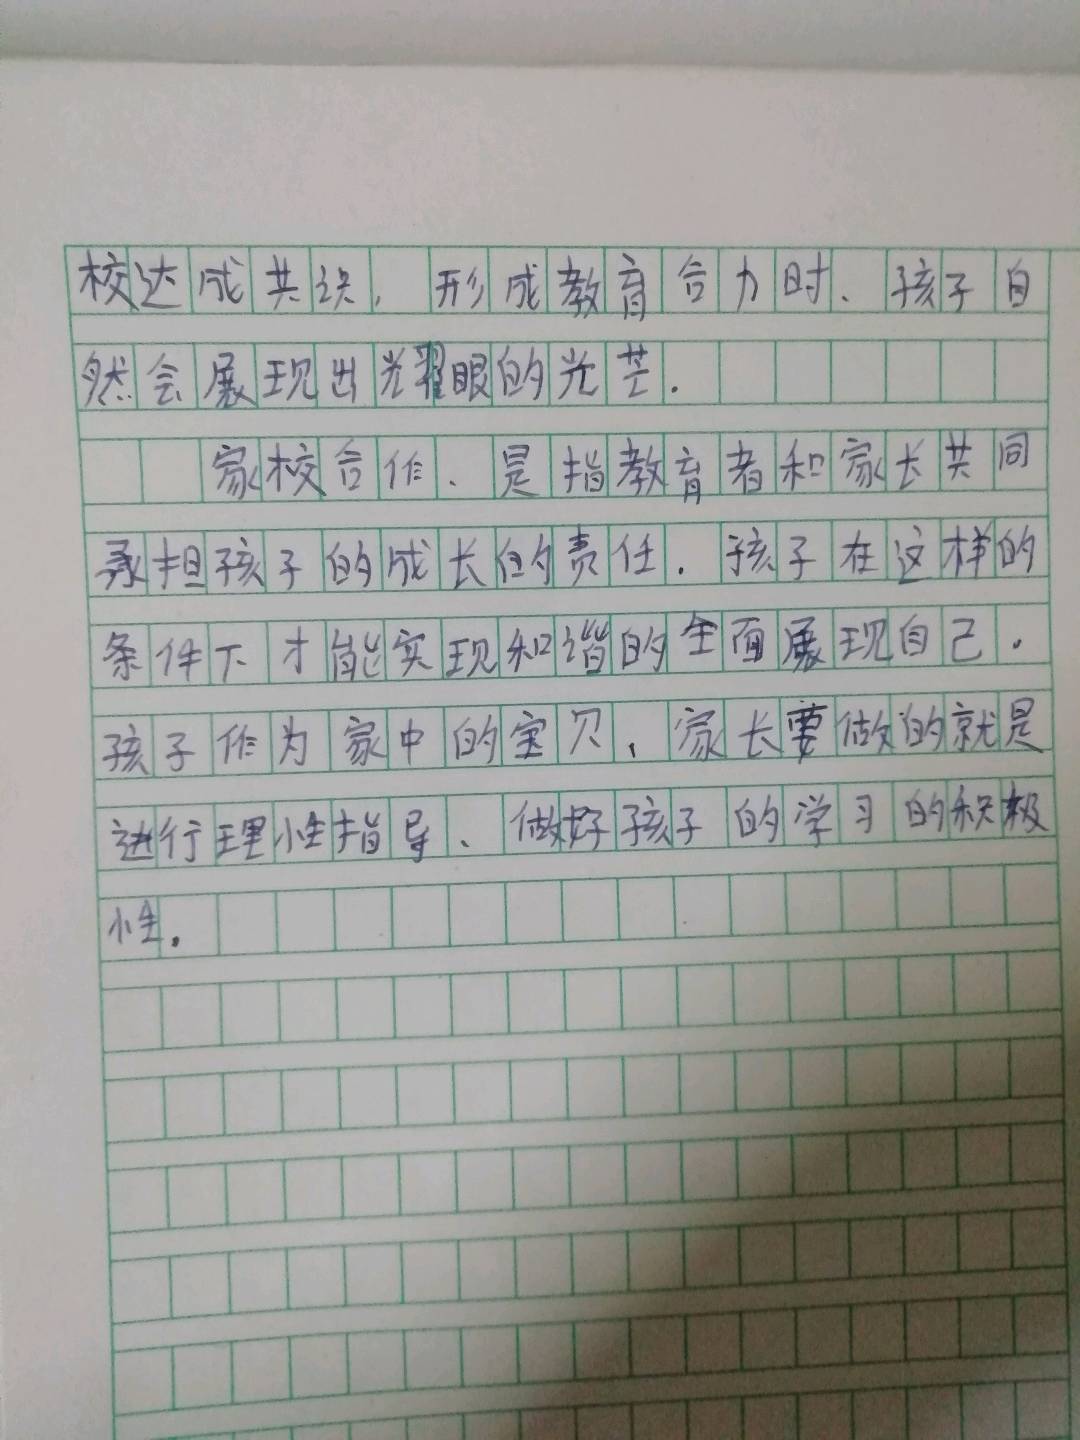 校达成共识,形成教育合力时、孩子自
然会展现出光耀眼的光芒.
家校合作、是指教育者和家长共同
承担孩子的成长的责任.孩子在这样的
条件下才能实现和谐的全面展现自己.
孩子作为家中的宝贝,家长要做的就是
进行理性指导、做好孩子的学习的积极
性.